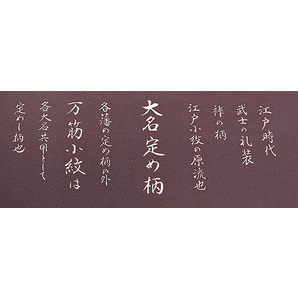 江戸時代
武士の礼装
裃の柄
江戸小紋の原流也
大名定め柄
各藩の定め柄の外
万筋小紋は
各大名共用として
定めし柄也